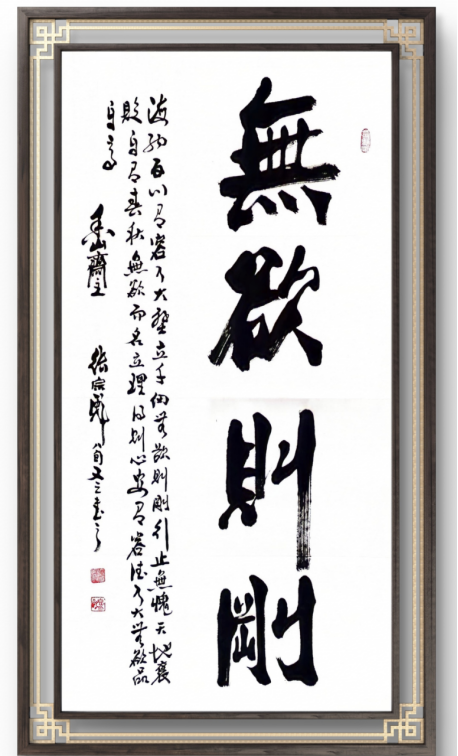 無欲則剛
海納百川有容乃大壁立千仞無欲則剛行止無愧天地褒
貶自有春秋無欲而名立理得則心安有容德乃大無欲品
自高
齋主
張宗